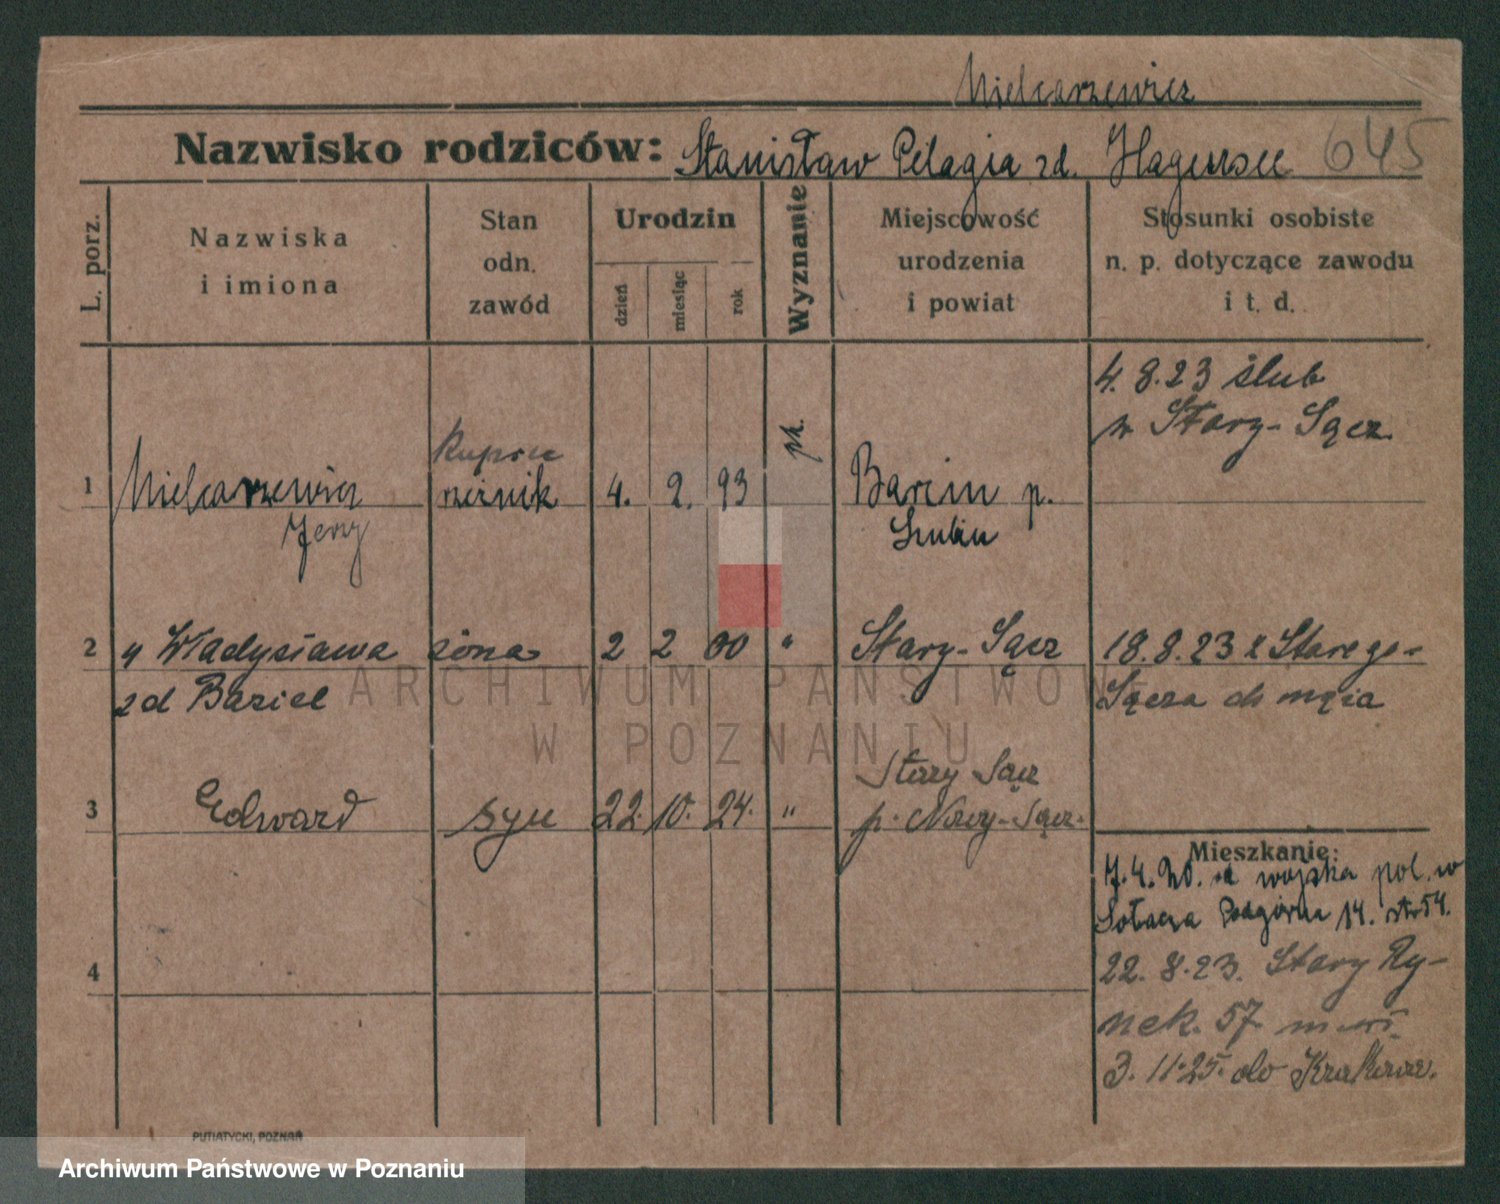 Mielcarzewicz
Nazwisko rodziców: Stanisław Pelagia zd. 645
L. porz.
Nazwiska i imiona
Stan odn. zawód
Urodzin
dzień
miesiąc
rok
Wyznanie
Miejscowość urodzenia i powiat
Stosunki osobiste n. p. dotyczące zawodu i t. d.
4. 8. 23 ślub
w Stary-Sącz
1 Mielcarzewicz rzeźnik 4. 2. 93 rk. Barcin p.
Jerzy Szubin
2 " Władysława żona 2 2 00 " Stary-Sącz 18.8.23 z Starego-
zd Baziel Sącza do męża
3 Edward syn 22. 10. 24. " Stary Sącz
p. Nowy-Sącz.
Mieszkanie:
7.4.20. od wojska pol. w
Sołacza Podgórna 14. str 54.
4
22. 8. 23. Stary Ry-
nek. 57
3. 11. 25. do Krakowa.
PUTIATYCKI, POZNAŃ
ARCHIWUM PAŃSTWOW
W POZNANIU
Archiwum Państwowe w Poznaniu